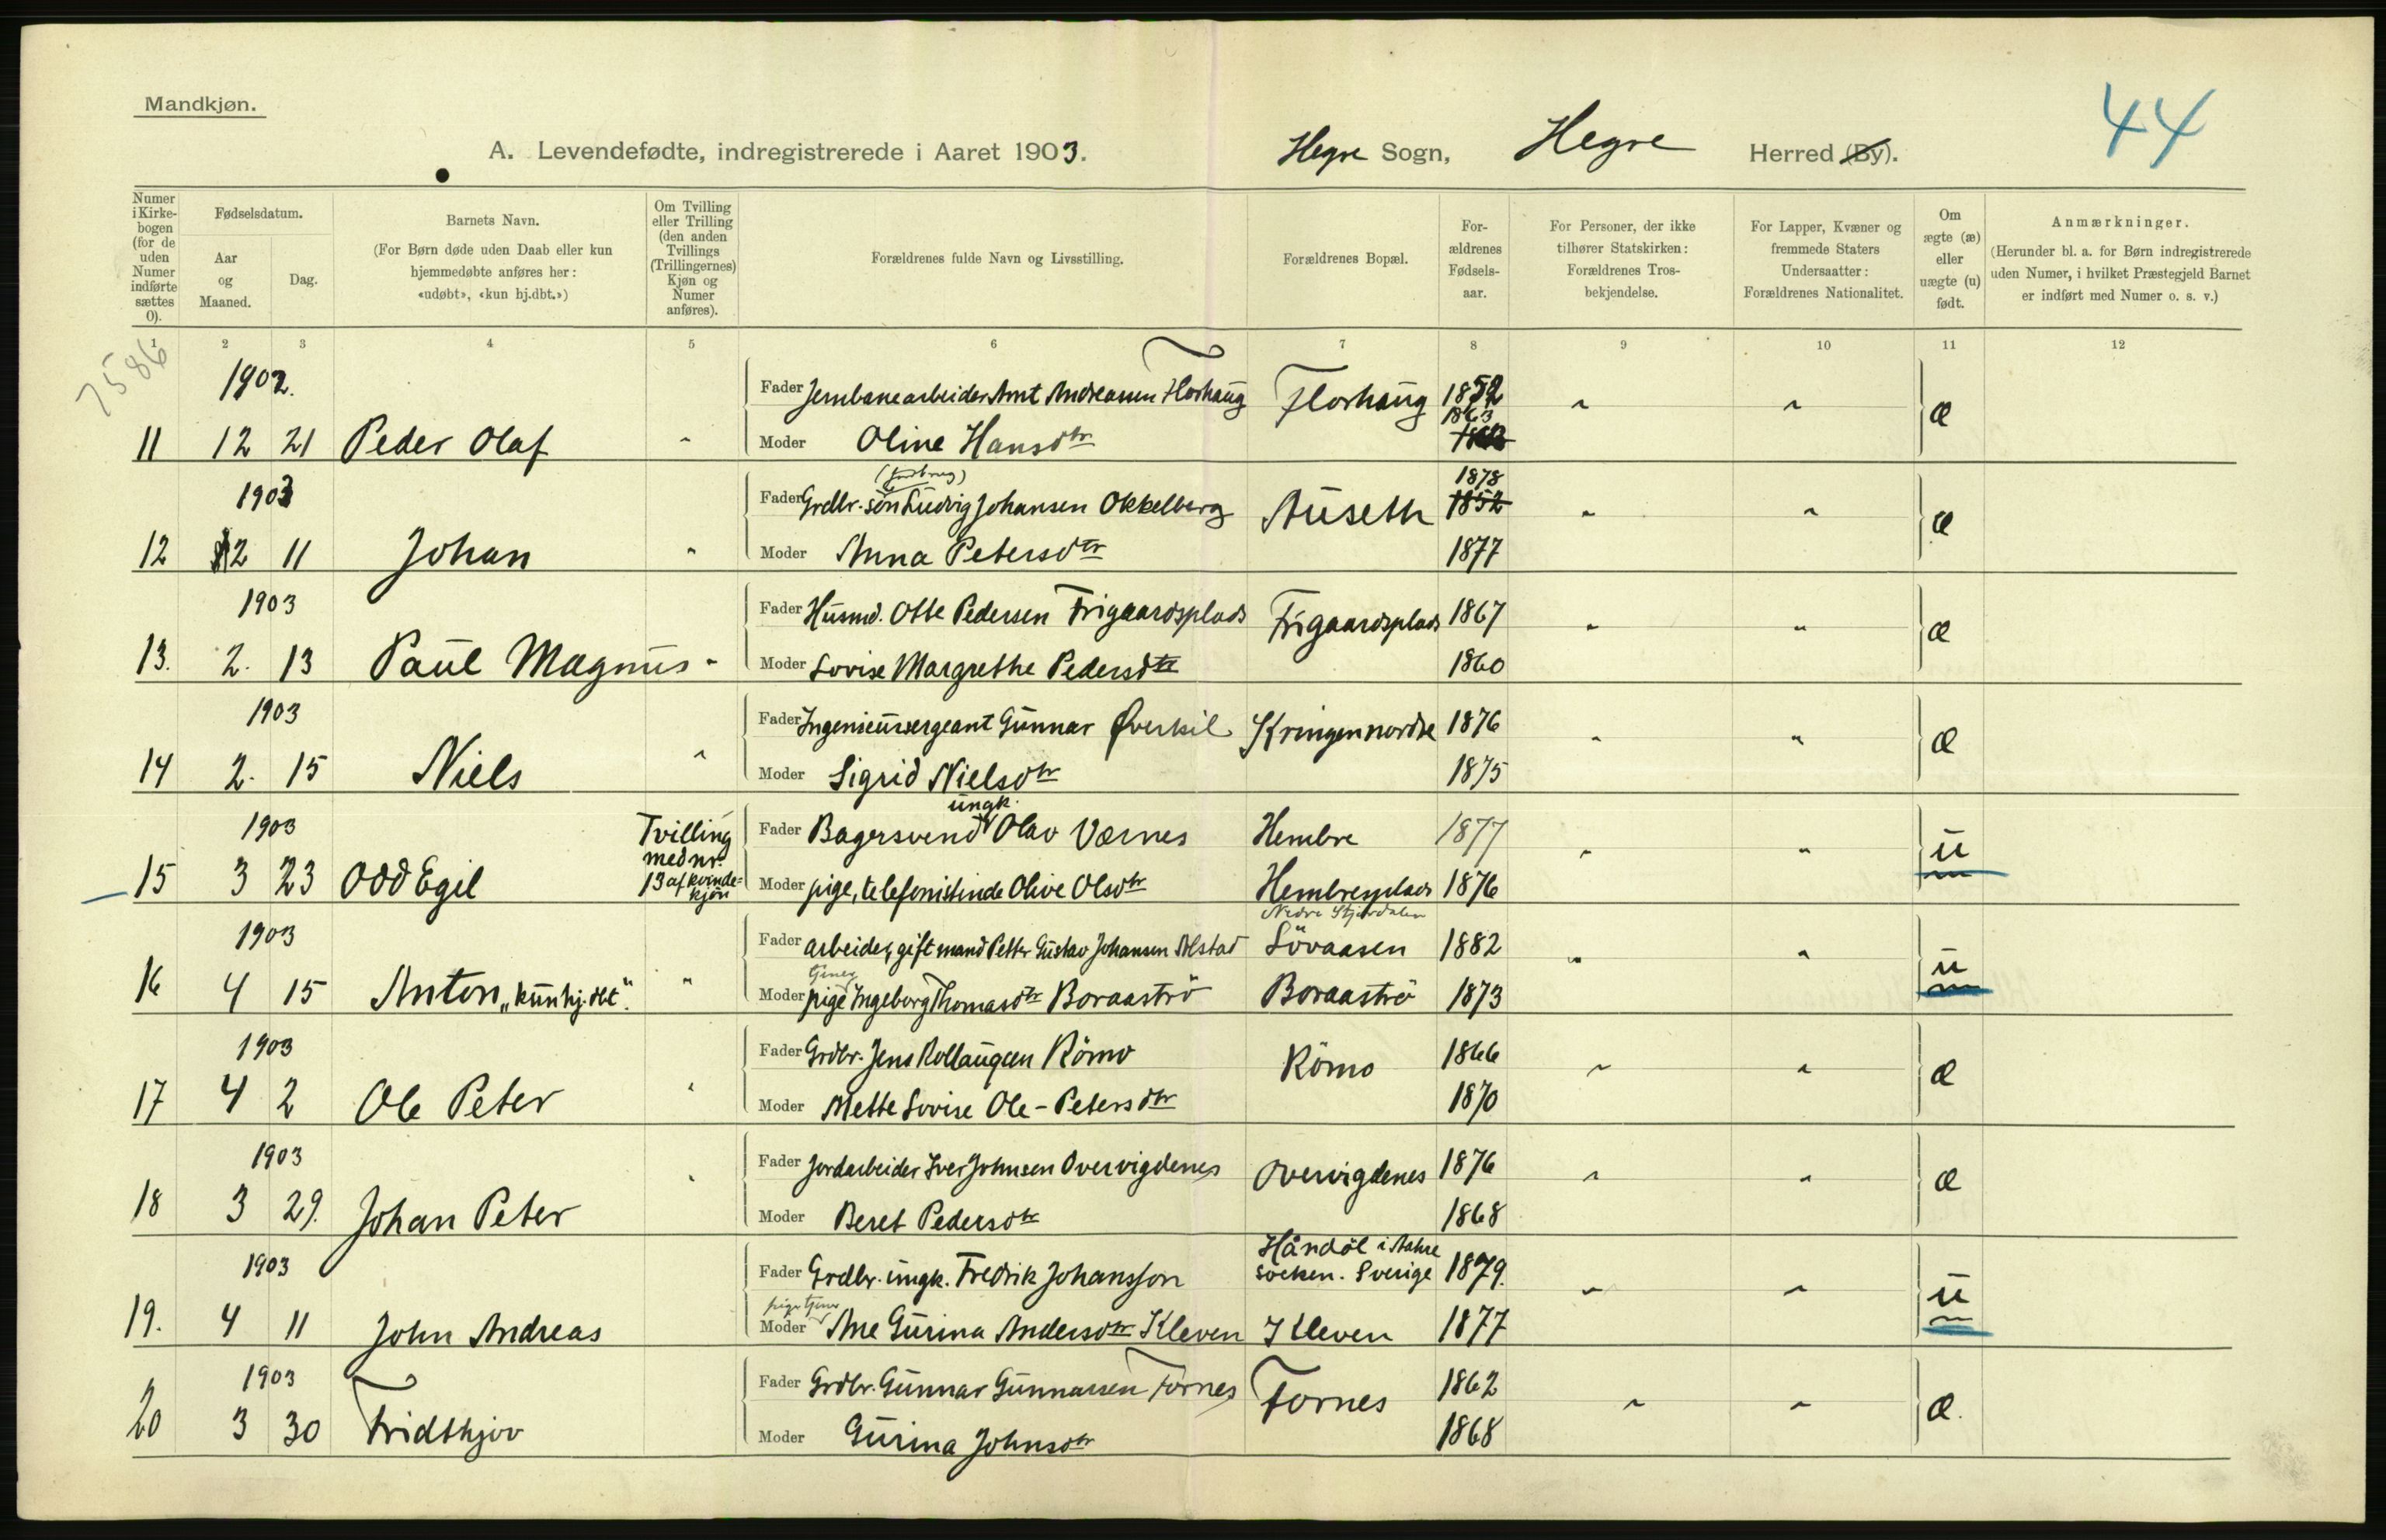 Mandkjøn.
44
A. Levendefødte, indregistrerede i Aaret 1903. Hegre Sogn, Hegre Herred (By).
Numer i Kirkebogen (for de uden Numer indførte sættes 0).
Fødselsdatum.
Aar og Maaned.
Dag.
Barnets Navn.
(For Børn døde uden Daab eller kun hjemmedøbte anføres her: «udøbt», «kun hj.dbt.»)
Om Tvilling eller Trilling (den anden Tvillings (Trillingernes) Kjøn og Numer anføres).
Forældrenes fulde Navn og Livsstilling.
Forældrenes Bopæl.
Forældrenes Fødselsaar.
For Personer, der ikke tilhører Statskirken: Forældrenes Trosbekjendelse.
For Lapper, Kvæner og fremmede Staters Undersaatter: Forældrenes Nationalitet.
Om ægte (æ) eller uægte (u) født.
Anmærkninger.
(Herunder bl. a. for Børn indregistrerede uden Numer, i hvilket Præstegjeld Barnet er indført med Numer o. s. v.)
1 2 3 4 5 6 7 8 9 10 11 12
7586
1902. Fader Jernbanearbeider Arnt Andreasen Florhaug Florhaug 1852 " " æ
11 12 21 Peder Olaf " Moder Oline Hansdtr 1863
1903 Fader Grdbr. søn Ludvig Johansen Okkelberg Auseth 1878 1852 " " æ
12 2 11 Johan " Moder Anna Petersdtr 1877
1903 Fader Husmd. Otte Pedersen Frigaardsplads Frigaardsplads 1867 " " æ
13. 2. 13 Paul Magnus " Moder Lovise Margrethe Pedersdtr 1860
1903 Fader Ingenieursergeant Gunnar Øverkil Kringen nordre 1876 " " æ
14 2. 15 Niels " Moder Sigrid Nielsdtr 1875
1903 Tvilling med nr. 13 af kvindekjøn Fader Bagersvend ungk. Olav Værnes Hembre 1877 " " u
15 3 23 Odd Egil Moder pige, telefonistinde Olive Olsdtr Hembresplads 1876
Nedre Stjørdalen
1903 Fader arbeider, gift mand Petter Gustav Johansen Alstad Lövaasen 1882 " " u
16 4 15 Anton "kun hj. dbt". " Moder tjener pige Ingeborg Thomasdtr Boraaströ Boraaströ 1873
1903 Fader Grdbr. Jens Rollaugsen Römo Römo 1866 " " æ
17 4 2 Ole Peter " Moder Mette Lovise Ole-Petersdtr 1870
1903 Fader Jordarbeider Iver Johnsen Overvigdenes Overvigdenes 1876 " " æ
18 3 29. Johan Peter " Moder Beret Pedersdtr 1868
1903 Fader Grdbr. ungk. Fredrik Johansson Håndöl i Aahre socken. Sverige 1879. " " u
19. 4 11 John Andreas Moder pige tjener Ane Gurina Andersdtr Kleven Kleven 1877
1903 Fader Grdbr. Gunnar Gunnarsen Fornes Fornes 1862 " " æ.
20 3 30 Fridthjov Moder Gurina Johnsdtr 1868